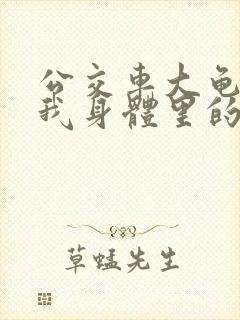 公交车大龟
我身體里的
草蜢先生